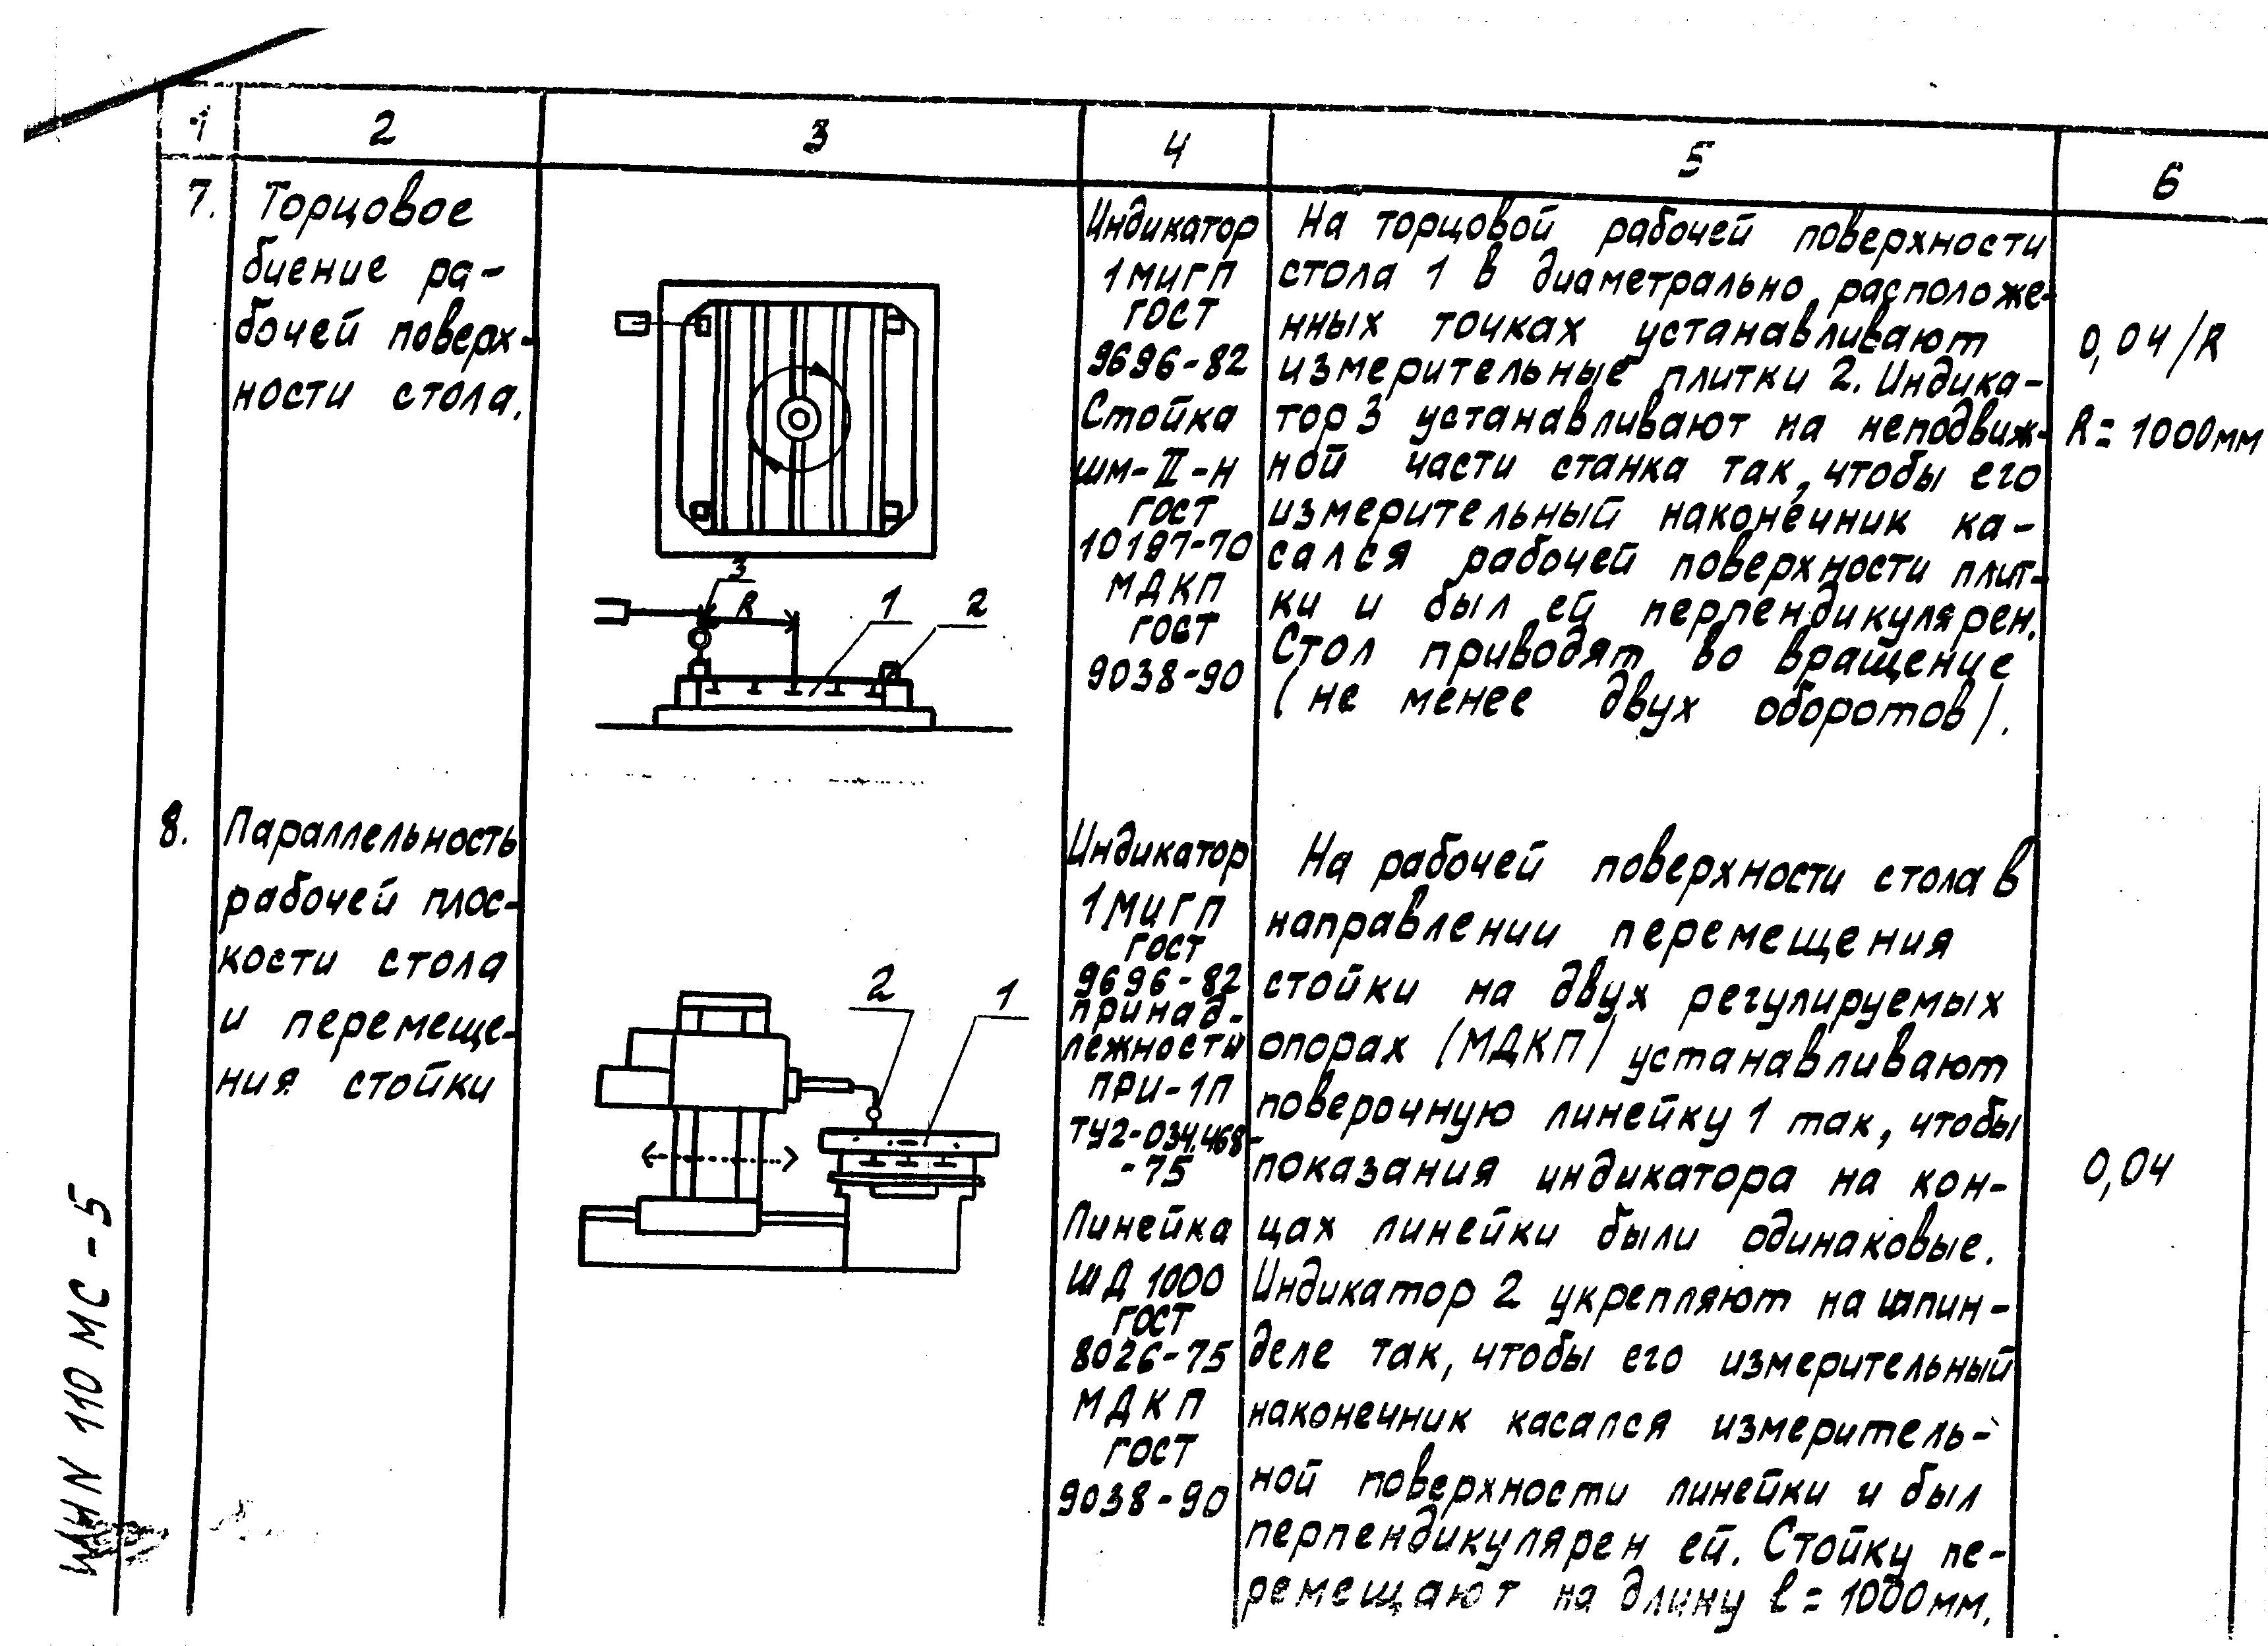 1 2 3 4 5 6
7. Торцовое
биение ра-
бочей поверх-
ности стола.
3
R
1
2
Индикатор
1МИГП
ГОСТ
9696-82
Стойка
ШМ-II-Н
ГОСТ
10197-70
МДКП
ГОСТ
9038-90
На торцовой рабочей поверхности
стола 1 в диаметрально расположе-
нных точках устанавливают
измерительные плитки 2. Индика-
тор 3 устанавливают на неподвиж-
ной части станка так, чтобы его
измерительный наконечник ка-
сался рабочей поверхности плит-
ки и был ей перпендикулярен.
Стол приводят во вращение
(не менее двух оборотов).
0,04/R
R=1000мм
8. Параллельность
рабочей плос-
кости стола
и перемеще-
ния стойки
2
1
Индикатор
1МИГП
ГОСТ
9696-82
принад-
лежности
ПРИ-1П
ТУ2-034.468-
-75
Линейка
ШД 1000
ГОСТ
8026-75
МДКП
ГОСТ
9038-90
На рабочей поверхности стола в
направлении перемещения
стойки на двух регулируемых
опорах (МДКП) устанавливают
поверочную линейку 1 так, чтобы
показания индикатора на кон-
цах линейки были одинаковые.
Индикатор 2 укрепляют на шпин-
деле так, чтобы его измерительный
наконечник касался измеритель-
ной поверхности линейки и был
перпендикулярен ей. Стойку пе-
ремещают на длину l=1000мм.
0,04
110 МС-5